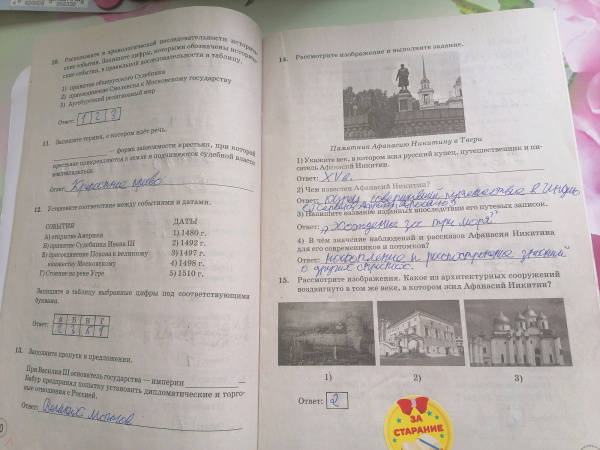 10. Расположите в хронологической последовательности историче-
ские события. Запишите цифры, которыми обозначены историче-
ские события, в правильной последовательности в таблицу.
1) принятие общерусского Судебника
2) присоединение Смоленска к Московскому государству
3) Аугсбургский религиозный мир
Ответ: 1 2 3
11. Запишите термин, о котором идёт речь.
— форма зависимости крестьян, при которой
крестьяне прикрепляются к земле и подчиняются судебной власти
землевладельца.
Ответ: Крепостное право
12. Установите соответствие между событиями и датами.
СОБЫТИЯ ДАТЫ
А) открытие Америки 1) 1480 г.
Б) принятие Судебника Ивана III 2) 1492 г.
В) присоединение Пскова к великому 3) 1497 г.
княжеству Московскому 4) 1498 г.
Г) Стояние на реке Угре 5) 1510 г.
Запишите в таблицу выбранные цифры под соответствующими
буквами.
А Б В Г
Ответ: 2 3 5 1
13. Заполните пропуск в предложении.
При Василии III основатель государства — империи —
Бабур предпринял попытку установить дипломатические и торго-
вые отношения с Россией.
Ответ: Великих Моголов
14. Рассмотрите изображение и выполните задание.
Памятник Афанасию Никитину в Твери
1) Укажите век, в котором жил русский купец, путешественник и пи-
сатель Афанасий Никитин.
Ответ: XV в.
2) Чем известен Афанасий Никитин?
Ответ: путешествие в Индию
3) Напишите название изданных впоследствии его путевых записок.
Ответ: „Хождение за три моря"
4) В чём значение наблюдений и рассказов Афанасия Никитина
для его современников и потомков?
Ответ: накопление и распространение знаний
о других странах.
15. Рассмотрите изображения. Какое из архитектурных сооружений
воздвигнуто в том же веке, в котором жил Афанасий Никитин?
1) 2) 3)
Ответ: 2
ЗА
СТАРАНИЕ